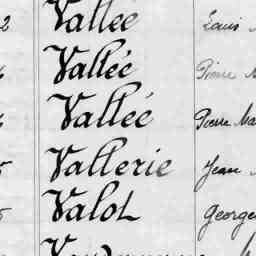 2 Vallée Louis
Vallée Pierre
Vallée Pierre Ma
Vallerie Jean
Valot George